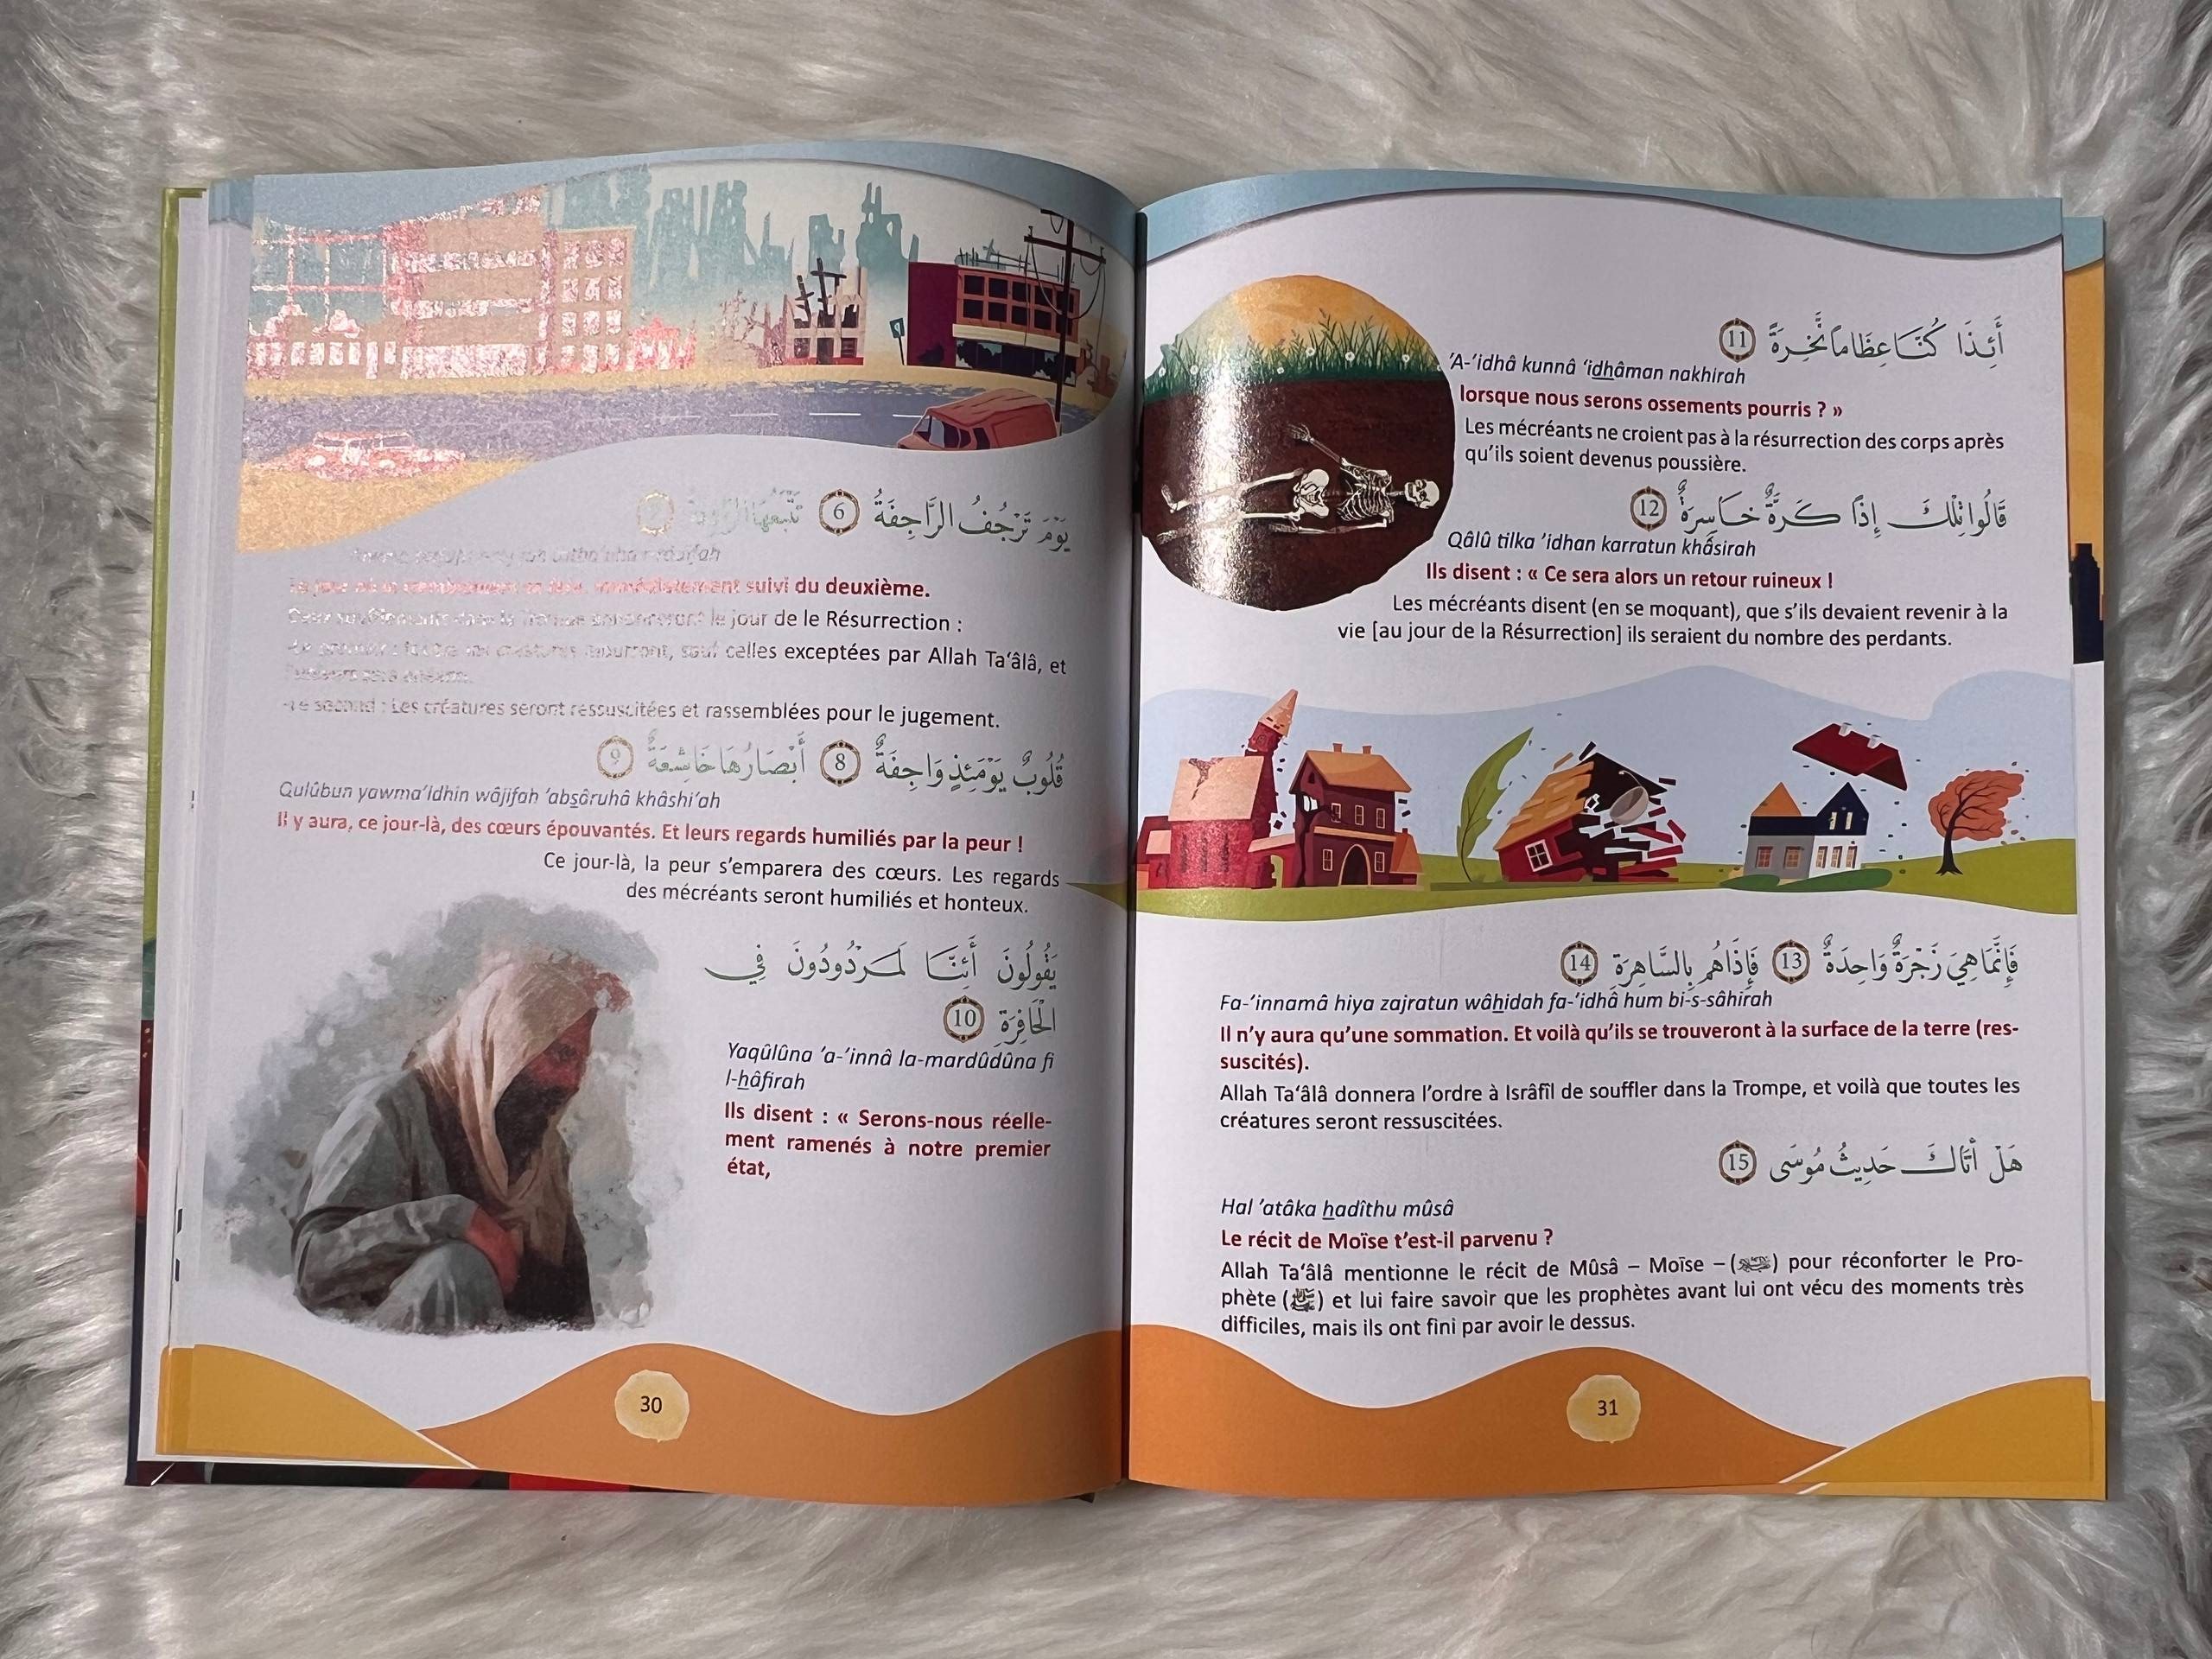 يَوْمَ تَرْجُفُ الرَّاجِفَةُ 6 تَتْبَعُهَا
suivi du deuxième.
le jour de le Résurrection :
sauf celles exceptées par Allah Ta‘âlâ, et
-Le second : Les créatures seront ressuscitées et rassemblées pour le jugement.
قُلُوبٌ يَوْمَئِذٍ وَاجِفَةٌ 8 أَبْصَارُهَا خَاشِعَةٌ 9
Qulûbun yawma’idhin wâjifah ’absâruhâ khâshi‘ah
Il y aura, ce jour-là, des cœurs épouvantés. Et leurs regards humiliés par la peur !
Ce jour-là, la peur s’emparera des cœurs. Les regards
des mécréants seront humiliés et honteux.
يَقُولُونَ أَئِنَّا لَمَرْدُودُونَ فِي
الْحَافِرَةِ 10
Yaqûlûna ’a-’innâ la-mardûdûna fi
l-hâfirah
Ils disent : « Serons-nous réelle-
ment ramenés à notre premier
état,
30
أَئِذَا كُنَّا عِظَامًا نَّخِرَةً 11
’A-’idhâ kunnâ ‘idhâman nakhirah
lorsque nous serons ossements pourris ? »
Les mécréants ne croient pas à la résurrection des corps après
qu’ils soient devenus poussière.
قَالُوا تِلْكَ إِذًا كَرَّةٌ خَاسِرَةٌ 12
Qâlû tilka ’idhan karratun khâsirah
Ils disent : « Ce sera alors un retour ruineux !
Les mécréants disent (en se moquant), que s’ils devaient revenir à la
vie [au jour de la Résurrection] ils seraient du nombre des perdants.
فَإِنَّمَا هِيَ زَجْرَةٌ وَاحِدَةٌ 13 فَإِذَا هُم بِالسَّاهِرَةِ 14
Fa-’innamâ hiya zajratun wâhidah fa-’idhâ hum bi-s-sâhirah
Il n’y aura qu’une sommation. Et voilà qu’ils se trouveront à la surface de la terre (res-
suscités).
Allah Ta‘âlâ donnera l’ordre à Isrâfîl de souffler dans la Trompe, et voilà que toutes les
créatures seront ressuscitées.
هَلْ أَتَاكَ حَدِيثُ مُوسَى 15
Hal ’atâka hadîthu mûsâ
Le récit de Moïse t’est-il parvenu ?
Allah Ta‘âlâ mentionne le récit de Mûsâ – Moïse – () pour réconforter le Pro-
phète (ﷺ) et lui faire savoir que les prophètes avant lui ont vécu des moments très
difficiles, mais ils ont fini par avoir le dessus.
31